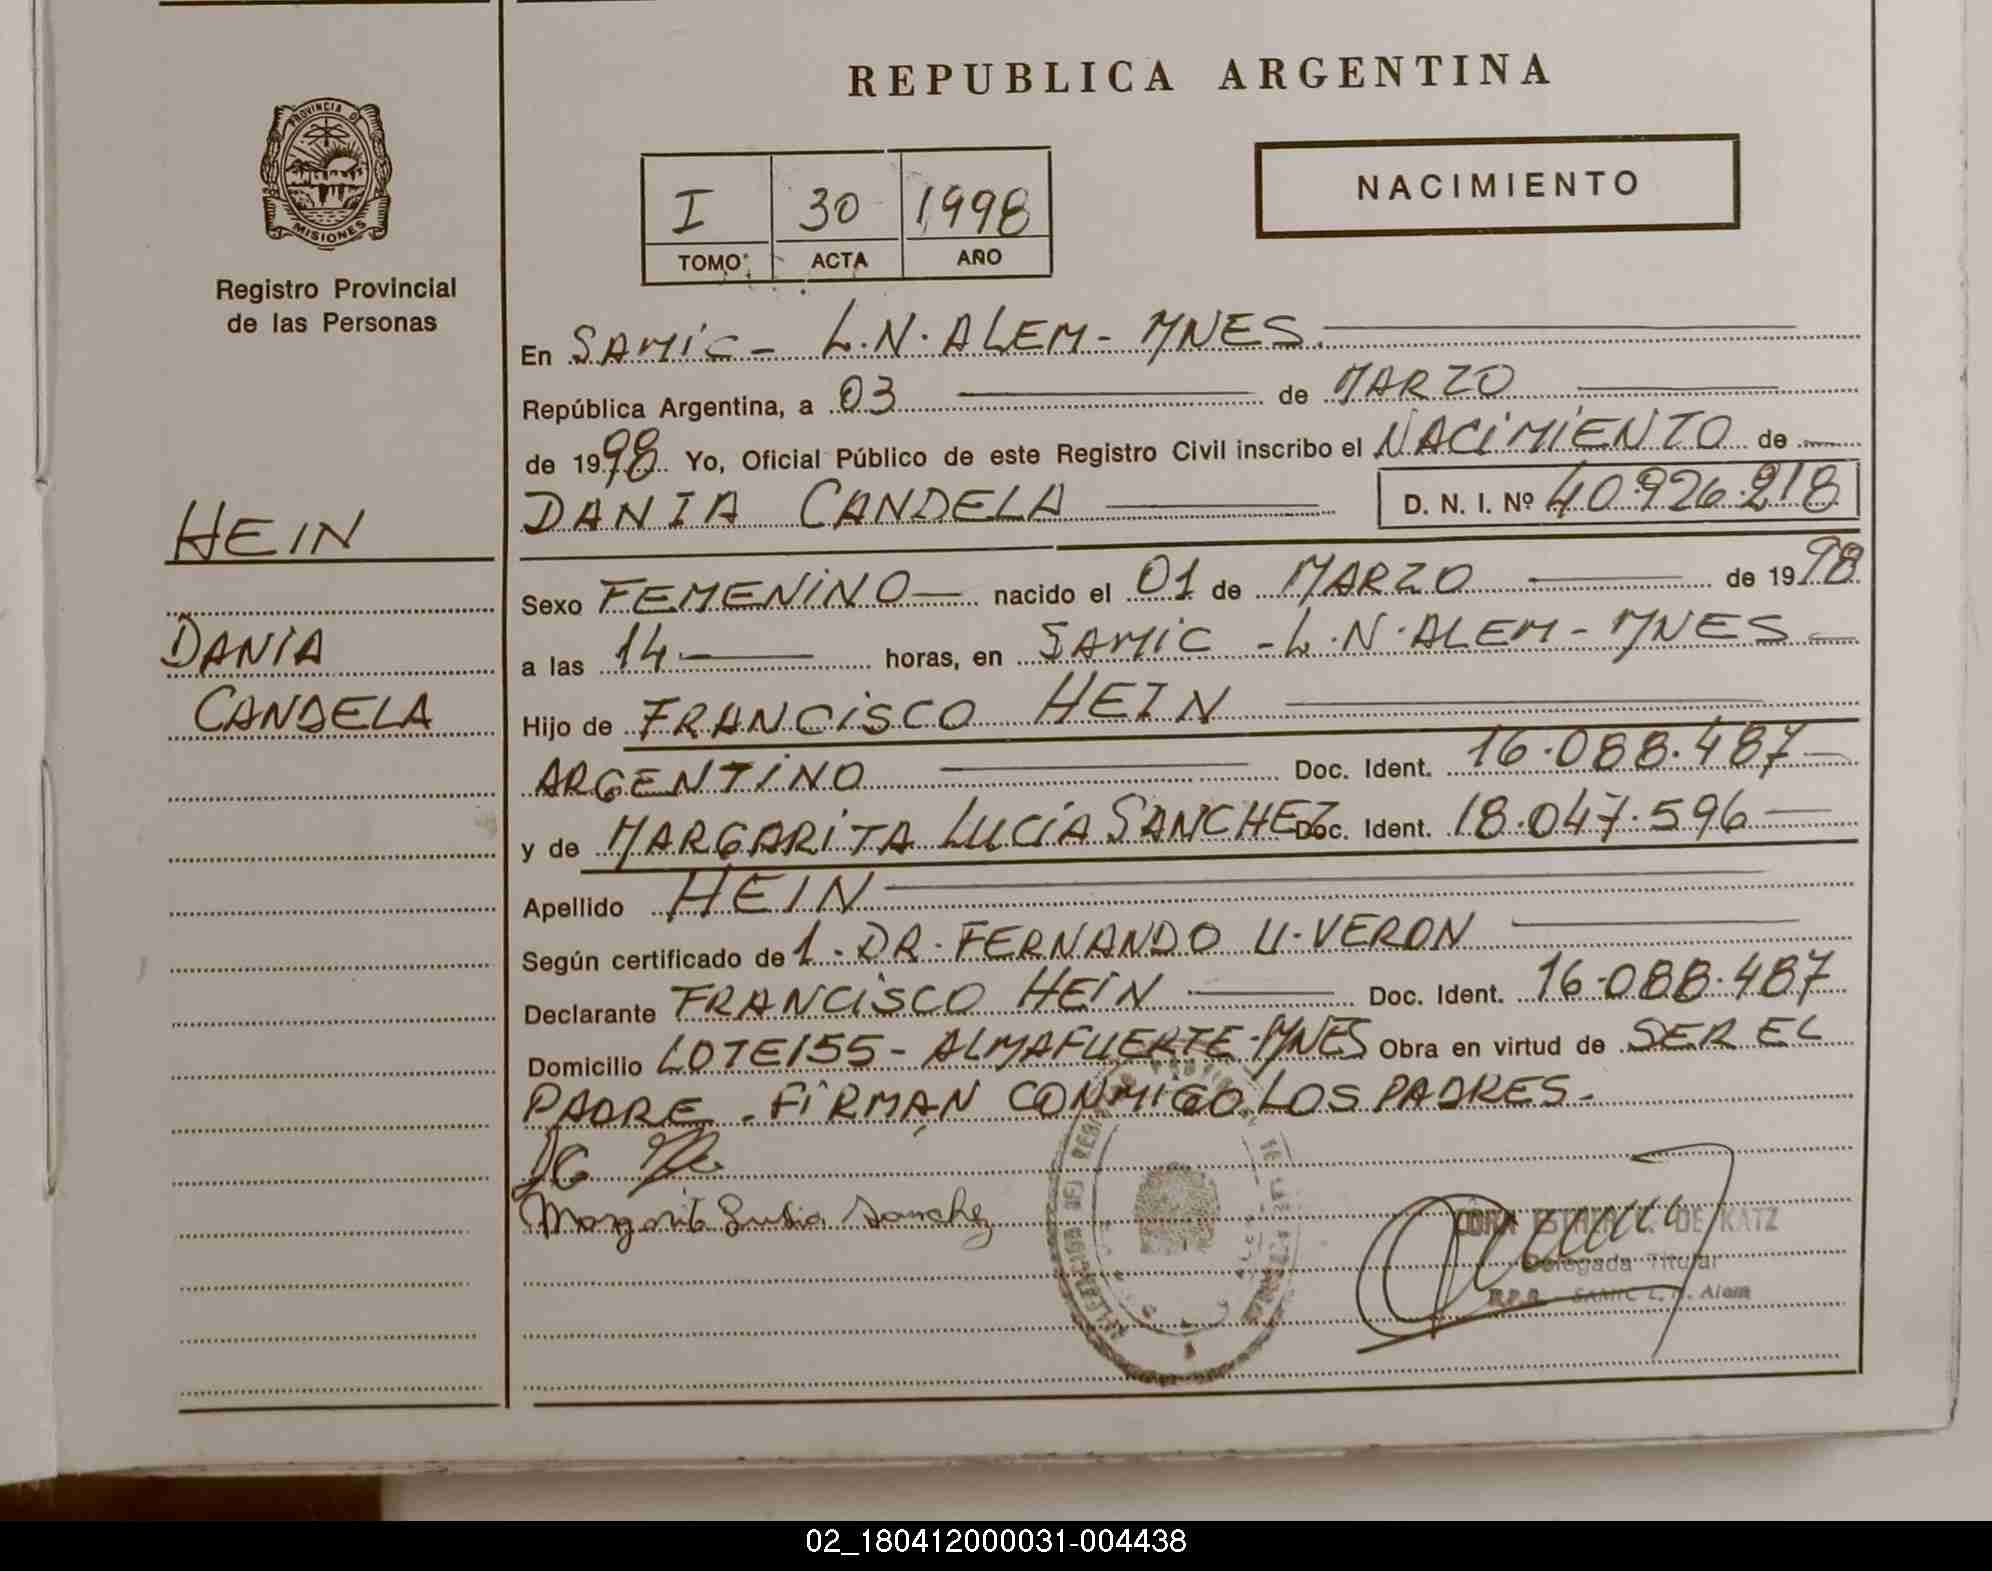 REPUBLICA ARGENTINA
PROVINCIA DE
MISIONES
Registro Provincial
de las Personas
NACIMIENTO
I 30 1998
TOMO ACTA AÑO
En SAMIC - L.N. ALEM - MNES.
República Argentina, a 03 de MARZO
de 1998 Yo, Oficial Público de este Registro Civil inscribo el NACIMIENTO de
DANIA CANDELA D. N. I. Nº 40.926.218
HEIN
DANIA
CANDELA
Sexo FEMENINO nacido el 01 de MARZO de 1998
a las 14 horas, en SAMIC - L.N. ALEM - MNES
Hijo de FRANCISCO HEIN
ARGENTINO Doc. Ident. 16.088.487
y de MARGARITA LUCIA SANCHEZ Doc. Ident. 18.047.596
Apellido HEIN
Según certificado de 1. DR. FERNANDO U. VERON
Declarante FRANCISCO HEIN Doc. Ident. 16.088.487
Domicilio LOTE 155 - ALMAFUERTE - MNES Obra en virtud de SER EL
PADRE. FIRMAN CONMIGO LOS PADRES.
Margarita Lucia Sanchez
DE KATZ
Delegada Titular
R.P.P. SAMIC L. N. Alem
02_180412000031-004438